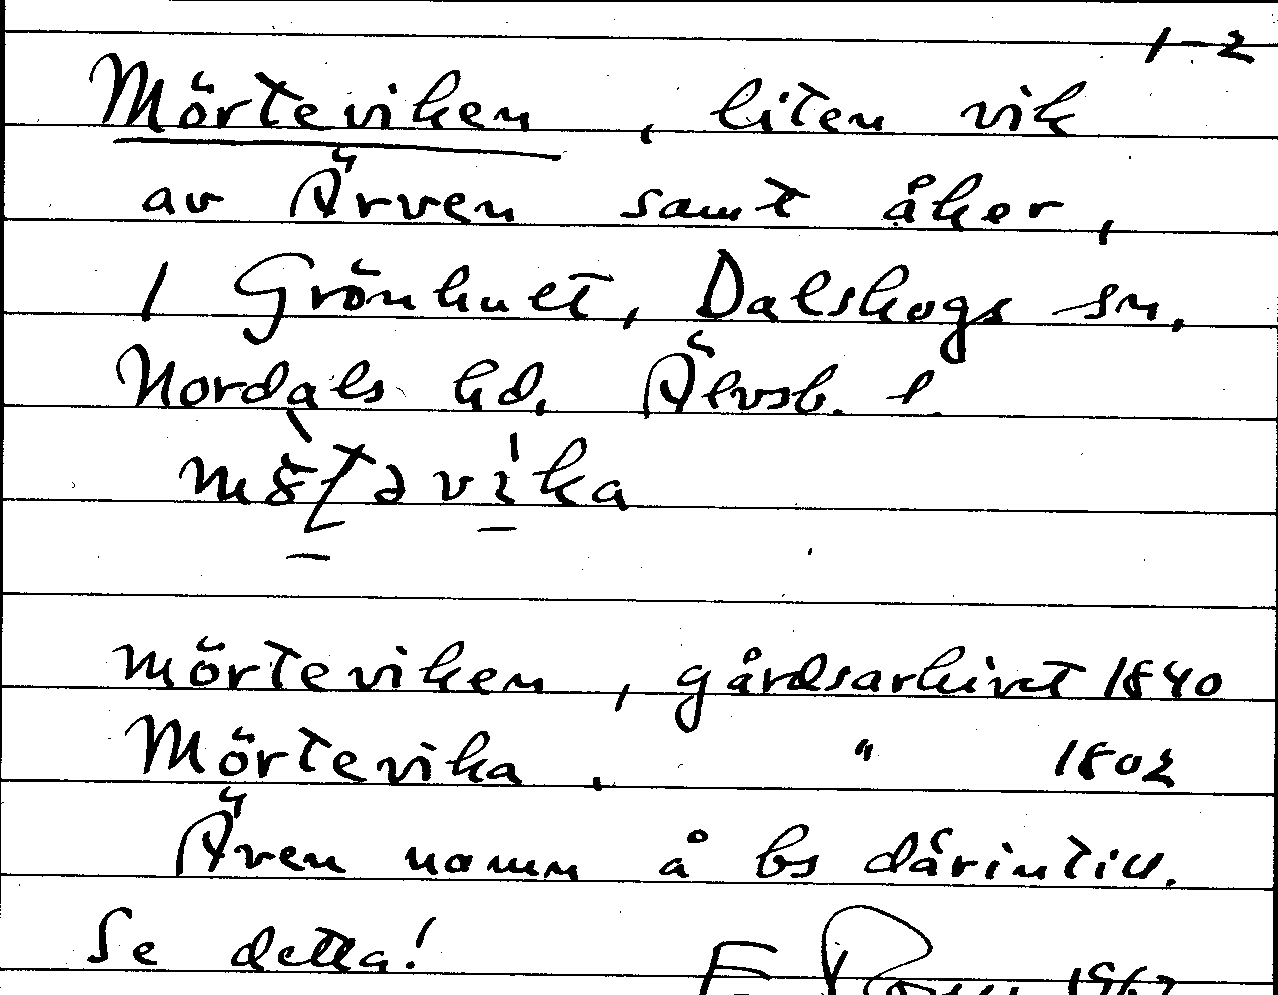 1-2
Mörteviken, liten vik
av Ärven samt åker,
1 Grönhult, Dalskogs sn.
Nordals hd. Älvsb. l.
mörteviken, gårdsarkivet 1840
Mörtevika, " 1802
Även namn å bs därintill.
Se detta!